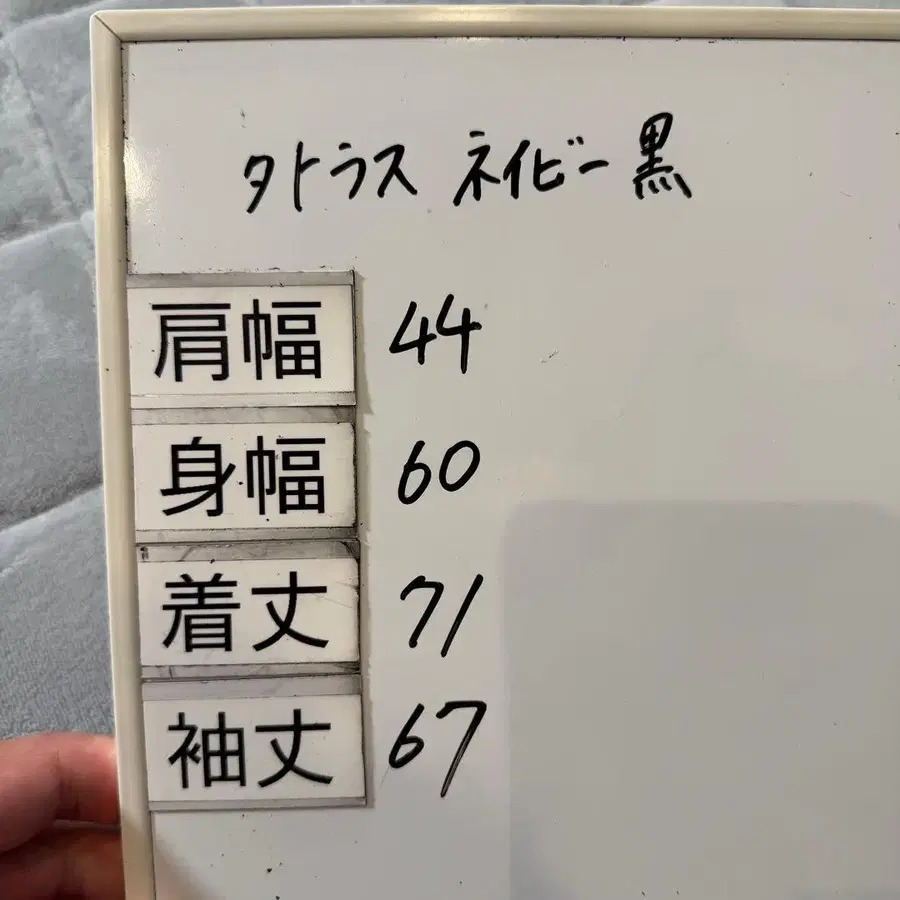 タトラス ネイビー黒
肩幅 44
身幅 60
着丈 71
袖丈 67